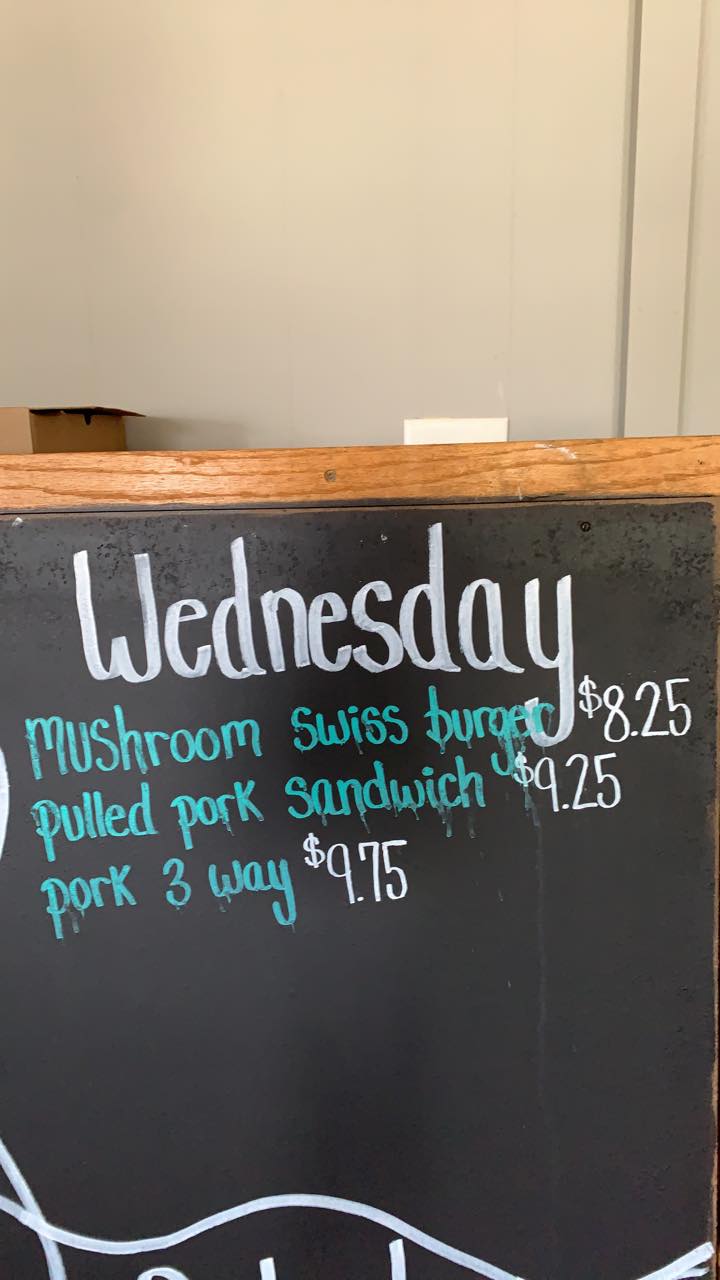 Wednesday
mushroom swiss burger $8.25
pulled pork sandwich $9.25
pork 3 way $9.75